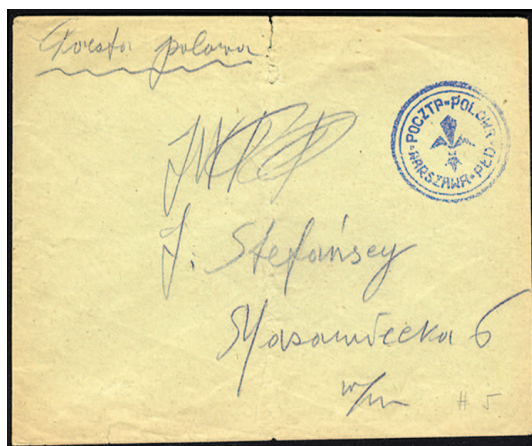 Poczta polowa
POCZTA-POLOWA
WARSZAWA-PŁD
J. Stefańscy
Mazowiecka 6
w/m
# 5